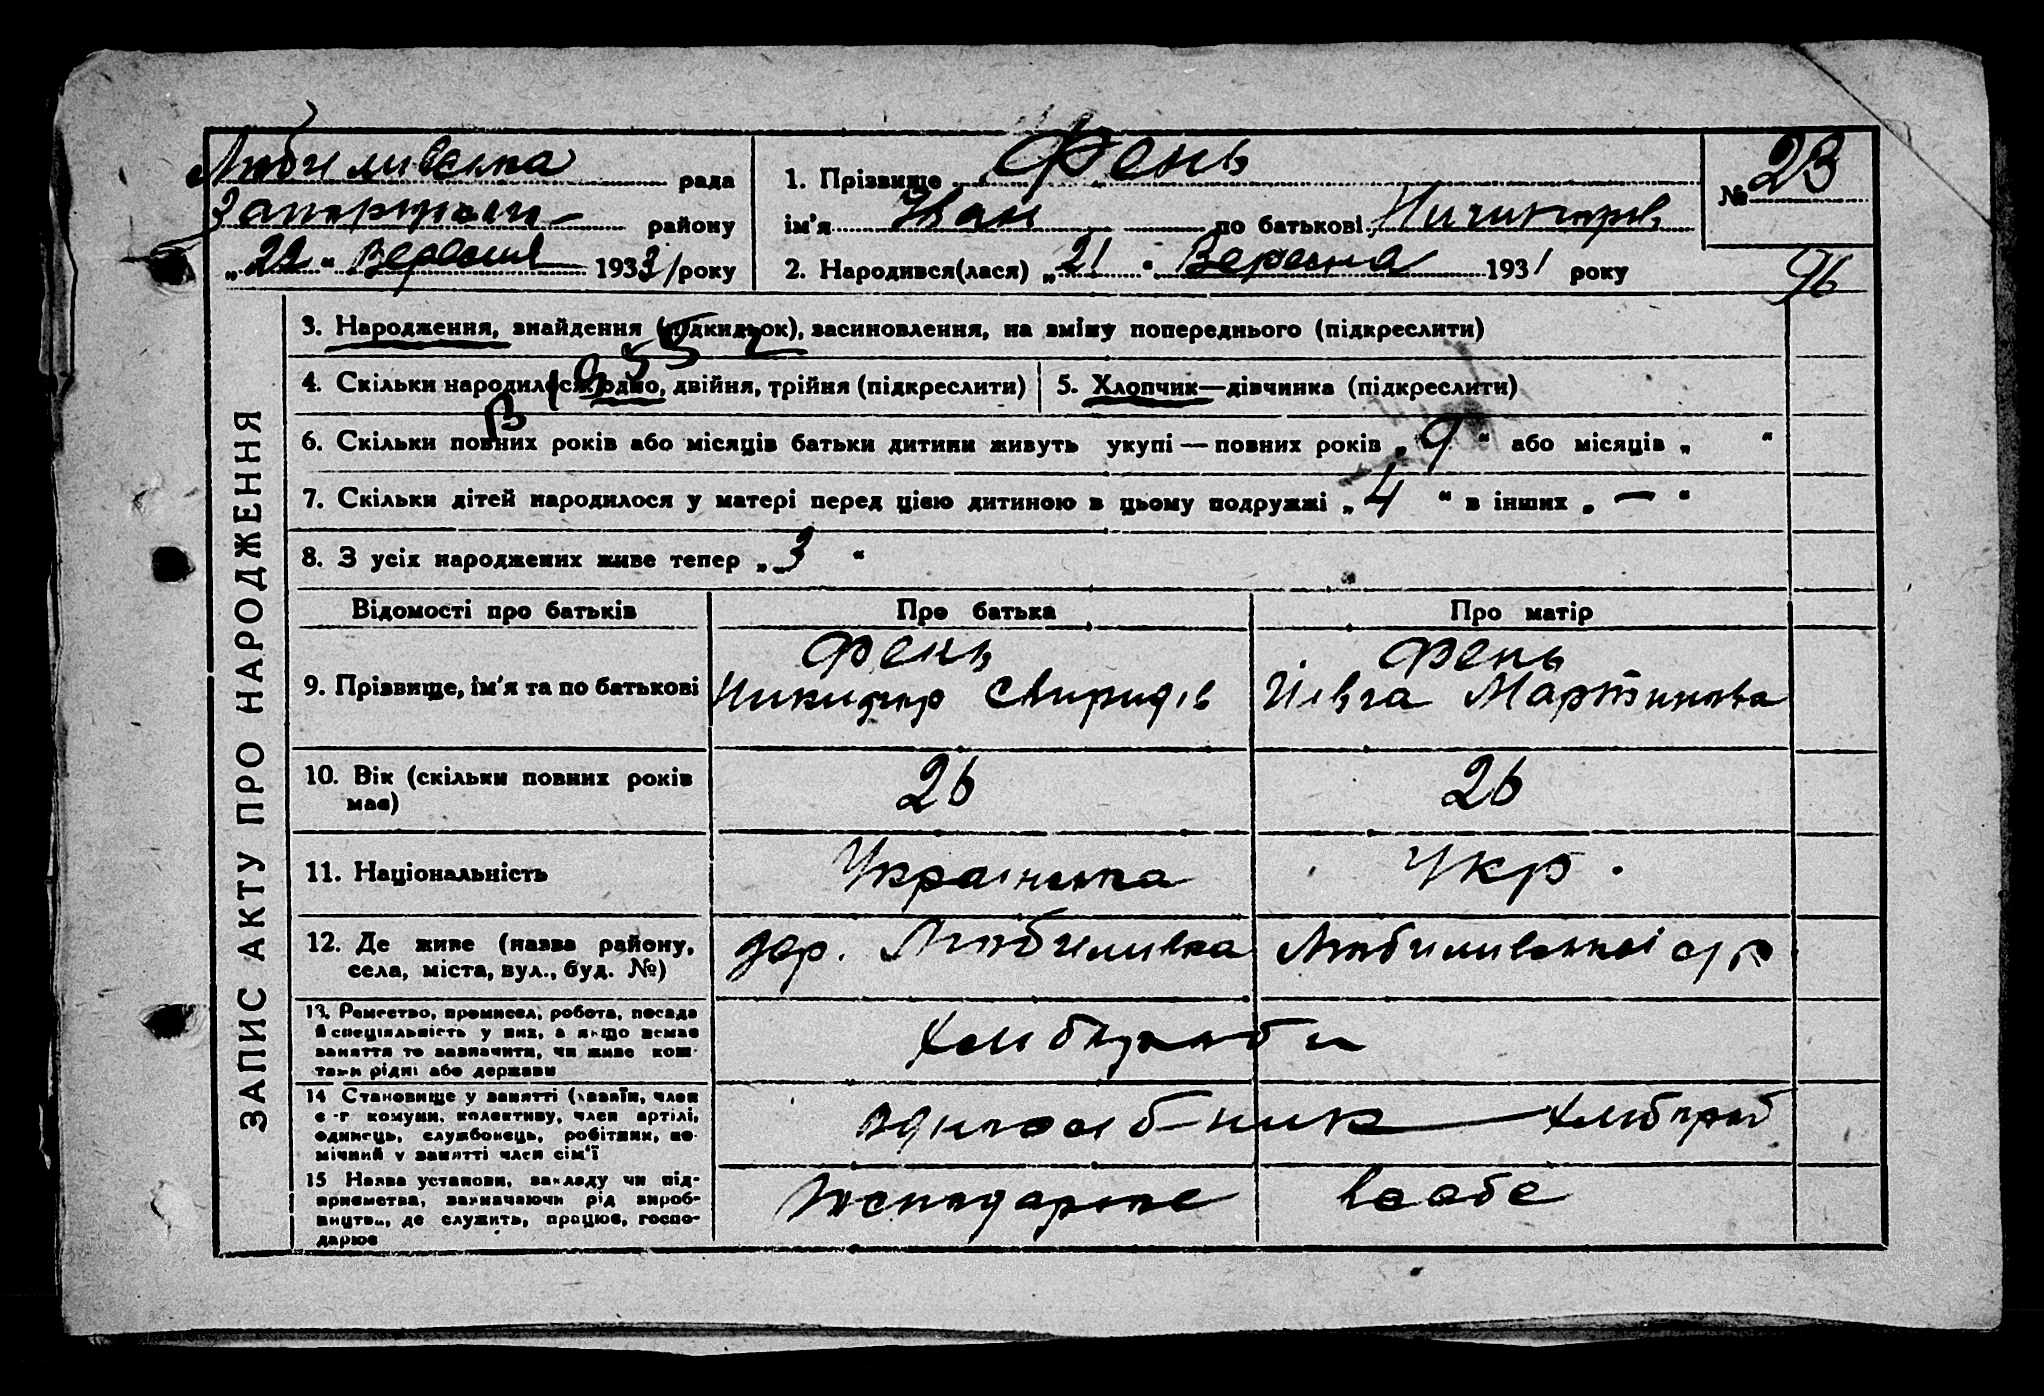 Любимивська рада
району
„22“ Вересня 1933/року
1. Прізвище Фень
ім'я Іван по батькові
2. Народився(лася) „21“ Вересня 1931 року
№ 23
96
ЗАПИС АКТУ ПРО НАРОДЖЕННЯ
3. Народження, знайдення (підкидьок), засиновлення, на зміну попереднього (підкреслити)
4. Скільки народилося: одно, двійня, трійня (підкреслити)
5. Хлопчик—дівчинка (підкреслити)
6. Скільки повних років або місяців батьки дитини живуть укупі — повних років „9“ або місяців „ “
7. Скільки дітей народилося у матері перед цією дитиною в цьому подружжі „4“ в інших „—“
8. З усіх народжених живе тепер „3“
Відомості про батьків Про батька Про матір
Фень Фень
9. Прізвище, ім'я та по батькові Никифор Свиридів Йивга Мартинова
10. Вік (скільки повних років має) 26 26
11. Національність Українська Укр.
12. Де живе (назва району, дер. Любимивка Любимивської с/р
села, міста, вул., буд. №)
13. Ремество, промисел, робота, посада
й спеціяльність у них, а якщо немає
заняття то зазначити, чи живе кош-
тами рідні або держави
14 Становище у занятті (хазяїн, член
с-г комуни, колективу, член артілі,
одинець, службовець, робітник, по-
мічний у занятті член сім'ї
15 Назва установи, закладу чи під-
приємства, зазначаючи рід вироб-
ництва, де служить, працює, госпо-
дарює